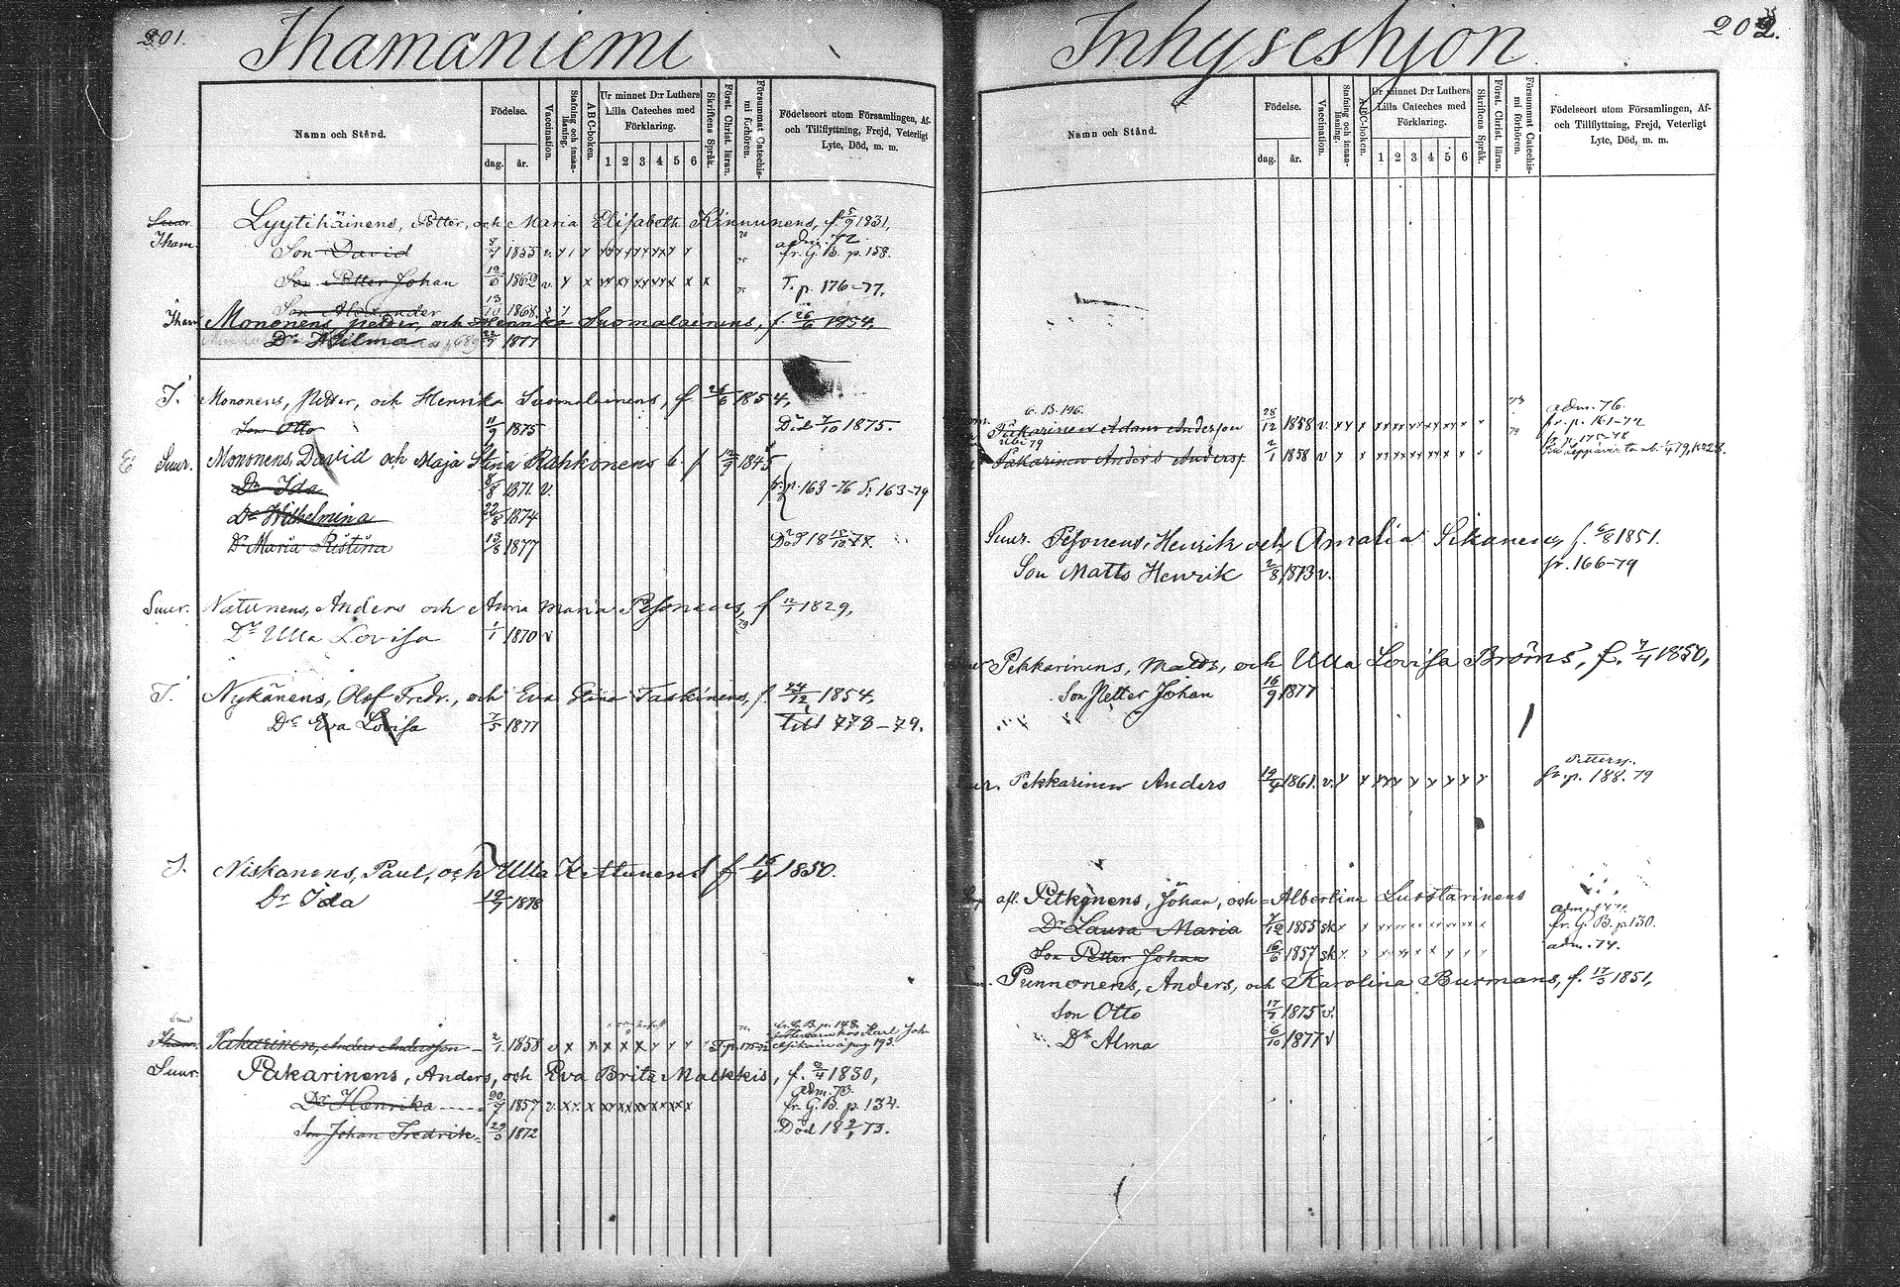 201.
Ihamaniemi
Namn och Stånd.
Födelse.
dag. år.
Vaccination.
Stafning och innan-läsning.
ABC-boken.
Ur minnet D:r Luthers Lilla Cateches med Förklaring.
1 2 3 4 5 6
Skriftens Språk.
Först. Christ. läran.
Försummat Catechis-mi förhören.
Födelseort utom Församlingen, Af- och Tillflyttning, Frejd, Veterligt Lyte, Död, m. m.
Suur
Iham. Lyytikäinens, Petter, och Maria Elisabeth Kinnunens, f. 5/9 1831,
adm. 72.
Son David 8/7 1855 v. fr. G. B. p. 158.
Son Petter Johan 19/6 1862 v. T. p. 176-77.
Son Alexander 13/10 1868.
Iham Mononens, Petter, och Henrika Suomalainens, f. 26/6 1854.
Dr Hilma 22/9 1877
I. Mononens, Petter, och Henrika Suomalainens, f. 26/6 1854,
Son Otto 11/9 1875 Död 7/10 1875.
Suur. Mononens, David och Maja Stina Rahkonens 6. f 12/9 1845
Dr Ida 8/8 1871. v. fr. p. 163-76 T. 163-79
Dr Wilhelmina 22/8 1874
Dr Maria Ristina 13/8 1877 Död 18 15/12 78.
Suur. Natunens, Anders och Anna Maria Pesonens, f 12/1 1829,
Dr Ulla Lovisa 1/1 1870 v
I. Nykänens, Olof Fredr., och Eva Stina Taskinens, f. 24/12 1854,
Dr Eva Lovisa 2/5 1877 till 778-79.
I. Niskanens, Paul, och Ulla Kettunens f 16/4 1850.
Dr Ida 19/7 1878
fr. G. B. p. 148.
Iham. Pakarinen, Anders Andersson 2/1 1858 v T. p. 175-72
Suur. Pakarinens, Anders, och Eva Brita Malkkis, f. 2/4 1830,
adm. 73.
Dr Henrika 20/7 1857 v. fr. G. B. p. 134.
Son Johan Fredrik 29/3 1872 Död 18 2/1 73.
202.
Inhyseshjon
Namn och Stånd.
Födelse.
dag. år.
Vaccination.
Stafning och innan-läsning.
ABC-boken.
Ur minnet D:r Luthers Lilla Cateches med Förklaring.
1 2 3 4 5 6
Skriftens Språk.
Först. Christ. läran.
Försummat Catechis-mi förhören.
Födelseort utom Församlingen, Af- och Tillflyttning, Frejd, Veterligt Lyte, Död, m. m.
G. B. 196. adm. 76.
Pakarinen Adam Andersson 28/12 1858 v. fr. p. 161-77
Pakarinen Anders Anderss. 2/1 1858 v
Suur. Pesonens, Henrik och Amalia Sikanens, f. 6/8 1851.
Son Matts Henrik 2/8 1873 v. fr. 166-79
Suur Pekkarinens, Matts, och Ulla Lovisa Broms, f. 7/4 1850,
Son Petter Johan 16/9 1877
Petterss.
Suur. Pekkarinen Anders 19/4 1861. v. fr. p. 188. 79
afl. Pitkänens, Johan, och Albertina Luostarinens
Dr Laura Maria 7/12 1855 sk fr. G. B. p 130.
Son Petter Johan 16/6 1857 sk adm. 74.
Punnonens, Anders, och Karolina Burmans, f. 17/3 1851,
Son Otto 17/7 1875 v.
Dr Alma 6/10 1877 v